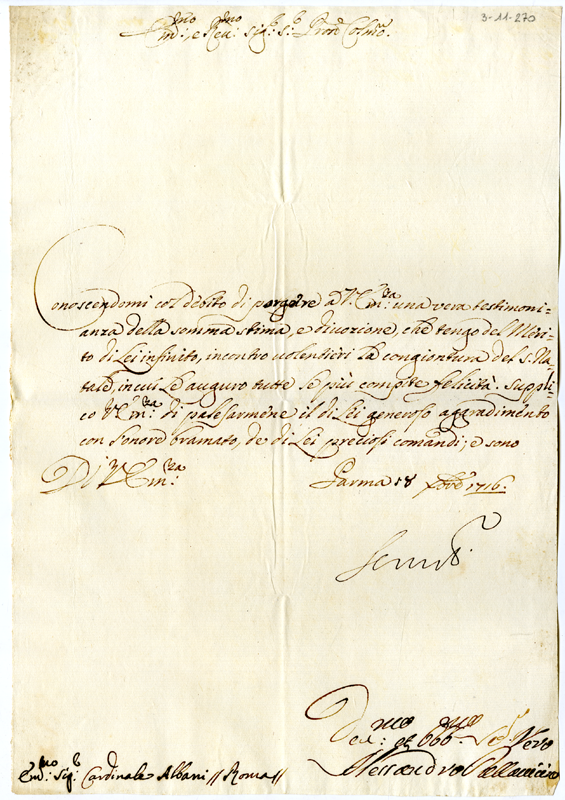 3-11-270
Em:^no e Reu:^mo Sig:^r S:^r Pron͂ Colmo͂.
Conoscendomi col debito di porgere à V. Em:^za una vera testimoni=
anza della somma stima, e diuozione, che tengo del Meri=
to di Lei infinito, incontro uolentieri la congiontura del S. Na=
tale, in cui Le auguro tutte le più compite felicità. Suppli=
co V. Em:^za di palesarmene il di Lei generoso aggradimento
con l'onore bramato, de di Lei preciosi comandi; e sono
Di V. Em:^za
Parma 18 Xbre 1716.
Deu:^mo et Obb:^mo Se.^r Vero
Alessandro Pallauicino
Em:^mo Sig:^r Cardinale Albani // Roma //